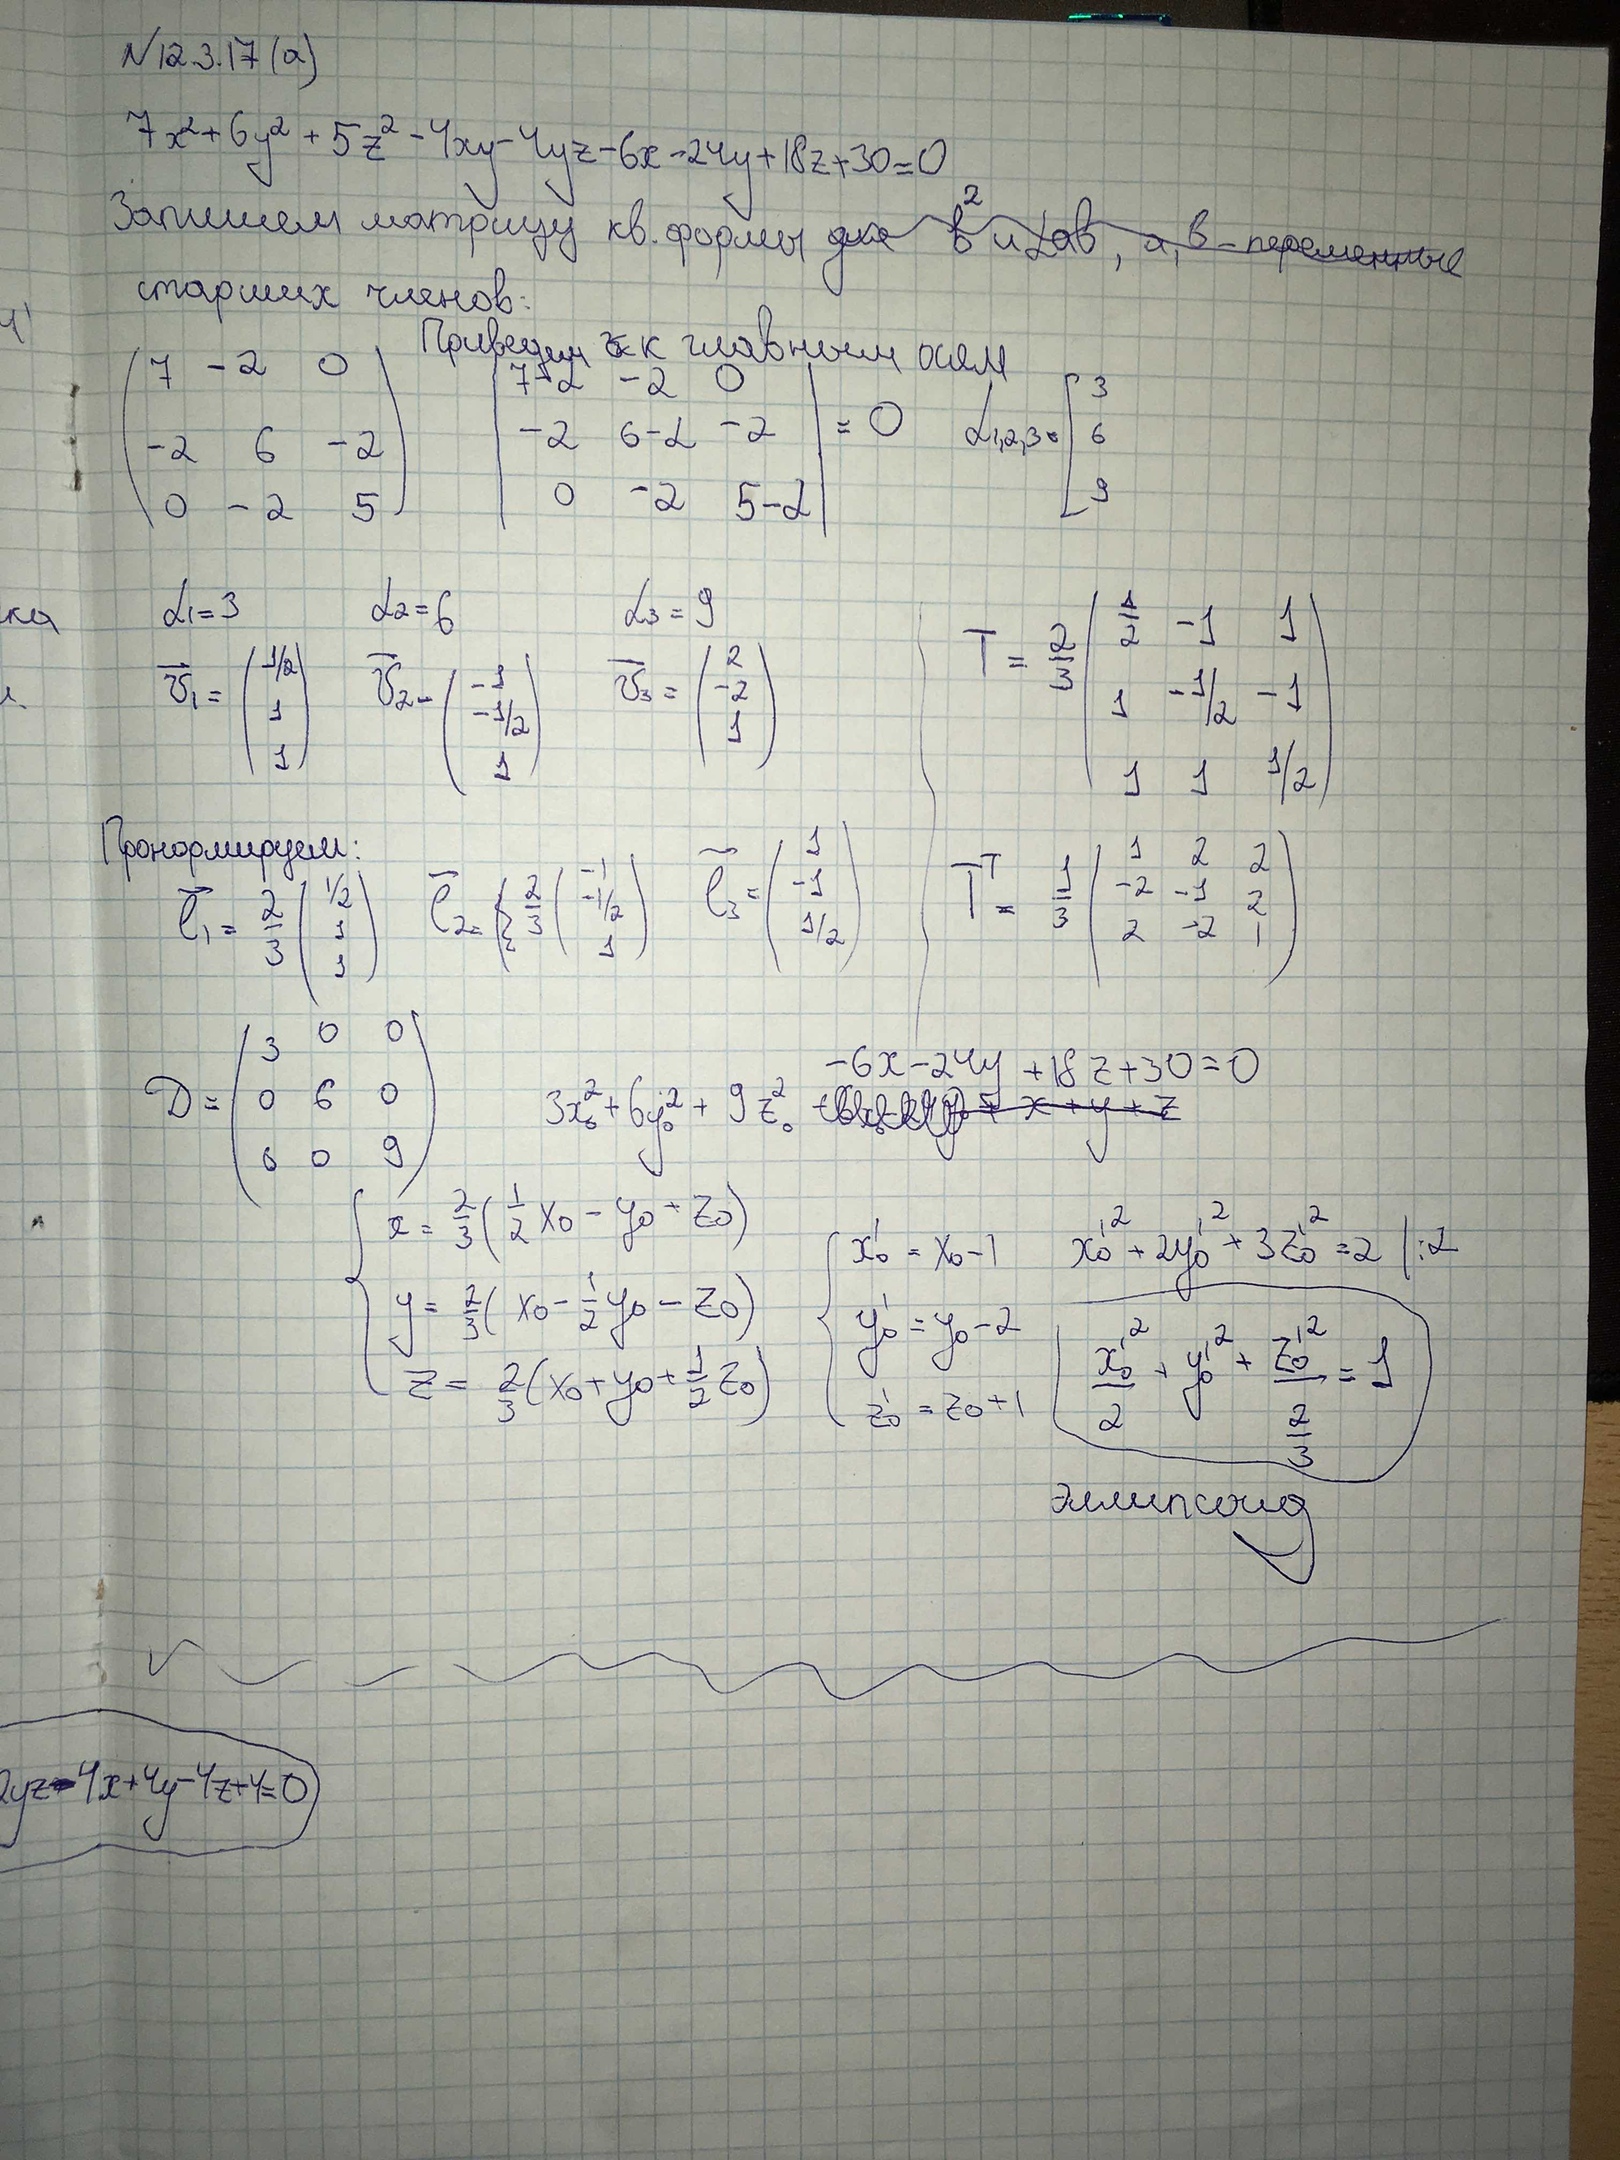 N12.3.17(а)
7x²+6y²+5z²-4xy-4yz-6x-24y+18z+30=0
Запишем матрицу кв. формы для b² и Lab, a, b - переменные
старших членов:
Приведем к главным осям
7 -2 0
-2 6 -2
0 -2 5
7-λ -2 0
-2 6-λ -2
0 -2 5-λ
=0
λ1,2,3 = [ 3
6
9
λ1=3 λ2=6 λ3=9
v1= (1/2 1 1) v2= (-1 -1/2 1) v3= (2 -2 1)
T= 2/3 ( 1/2 -1 1
1 -1/2 -1
1 1 1/2 )
Пронормируем:
e1= 2/3 (1/2 1 1) e2= 2/3 (-1 -1/2 1) e3= (1 -1 1/2)
Tᵀ= 1/3 ( 1 2 2
-2 -1 2
2 -2 1 )
D= ( 3 0 0
0 6 0
0 0 9 )
-6x-24y+18z+30=0
3x₀²+6y₀²+9z₀²
x= 2/3(1/2 x₀ - y₀ + z₀)
y= 2/3(x₀ - 1/2 y₀ - z₀)
z= 2/3(x₀+y₀+1/2 z₀)
x₀' = x₀-1
y₀' = y₀-2
z₀' = z₀+1
x₀'²+2y₀'²+3z₀'²=2 |:2
x₀'²/2 + y₀'² + z₀'²/(2/3) = 1
Эллипсоид
2yz-4x+4y-4z+4=0
ка